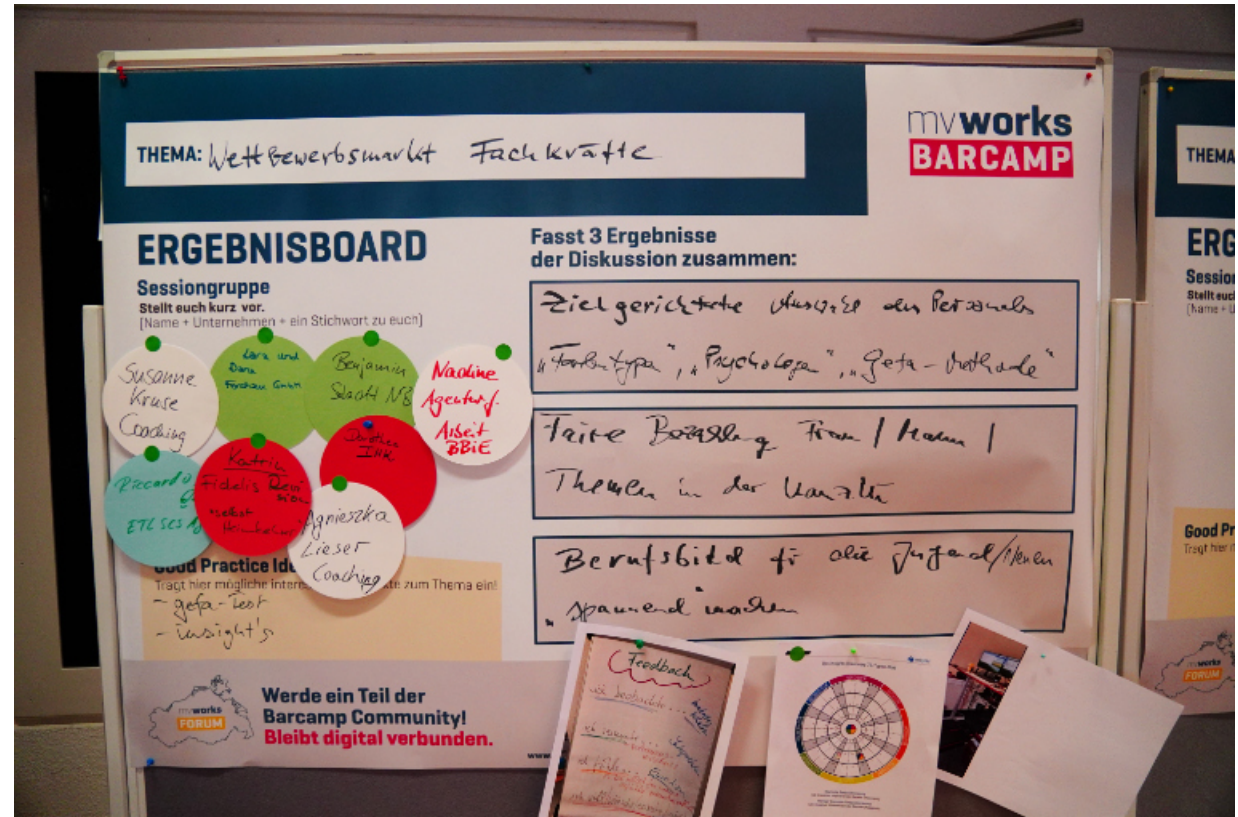 mvworks
BARCAMP
THEMA: Wettbewerbsmarkt Fachkräfte
THEMA
ERGEBNISBOARD
Sessiongruppe
Stellt euch kurz vor.
[Name + Unternehmen + ein Stichwort zu euch]
Susanne
Kruse
Coaching
Lara und
Dana
GmbH
Benjamin
Stadt NB
Nadine
Agentur f.
Arbeit
BBiE
Riccardo
ETL SCS AG
Katrin
Fidelis Revi
sion
selbst
Dorothea
IHK
Agnieszka
Lieser
Coaching
Good Practice Ide
Tragt hier mögliche inter te zum Thema ein!
- gefa-Test
- insight's
Fasst 3 Ergebnisse
der Diskussion zusammen:
Zielgerichtete Auswahl des Personals
„Farbentypen", „Psychologen", „gefa-Methode"
Faire Bezahlung Frau / Mann /
Themen in der Kanzlei
Berufsbild für die Jugend/
„spannend" machen
mvworks
FORUM
Werde ein Teil der
Barcamp Community!
Bleibt digital verbunden.
www
Feedback
ich beobachte...
ERG
Session
Stellt euch
[Name + U
Good Pr
Tragt hier m
mvworks
FORUM